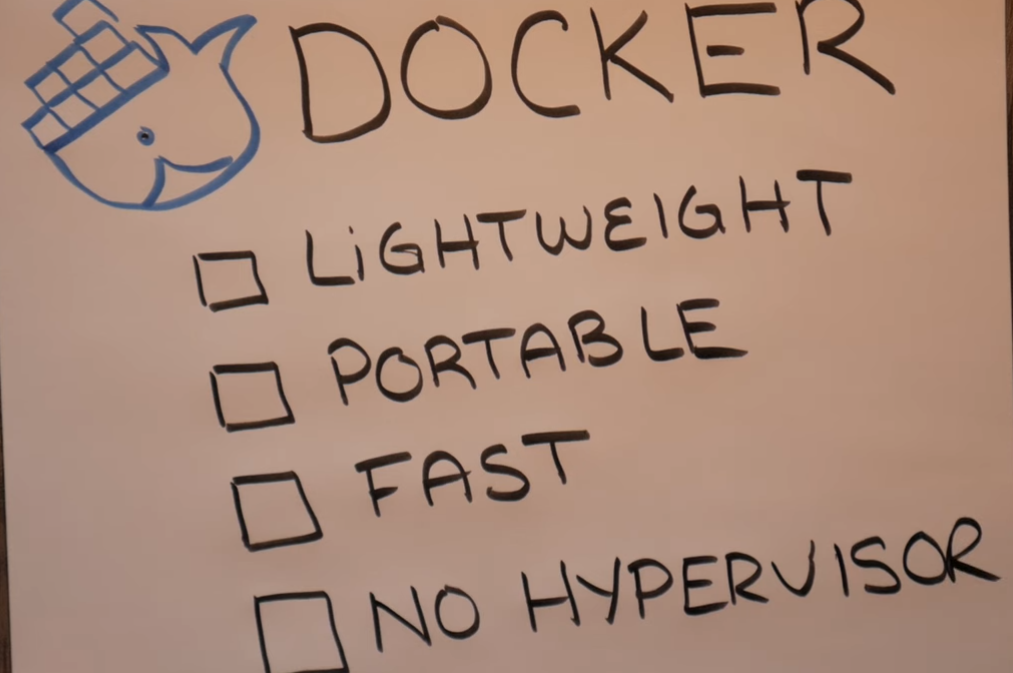 DOCKER
LiGHTWEIGHT
PORTABLE
FAST
NO HYPERVISOR